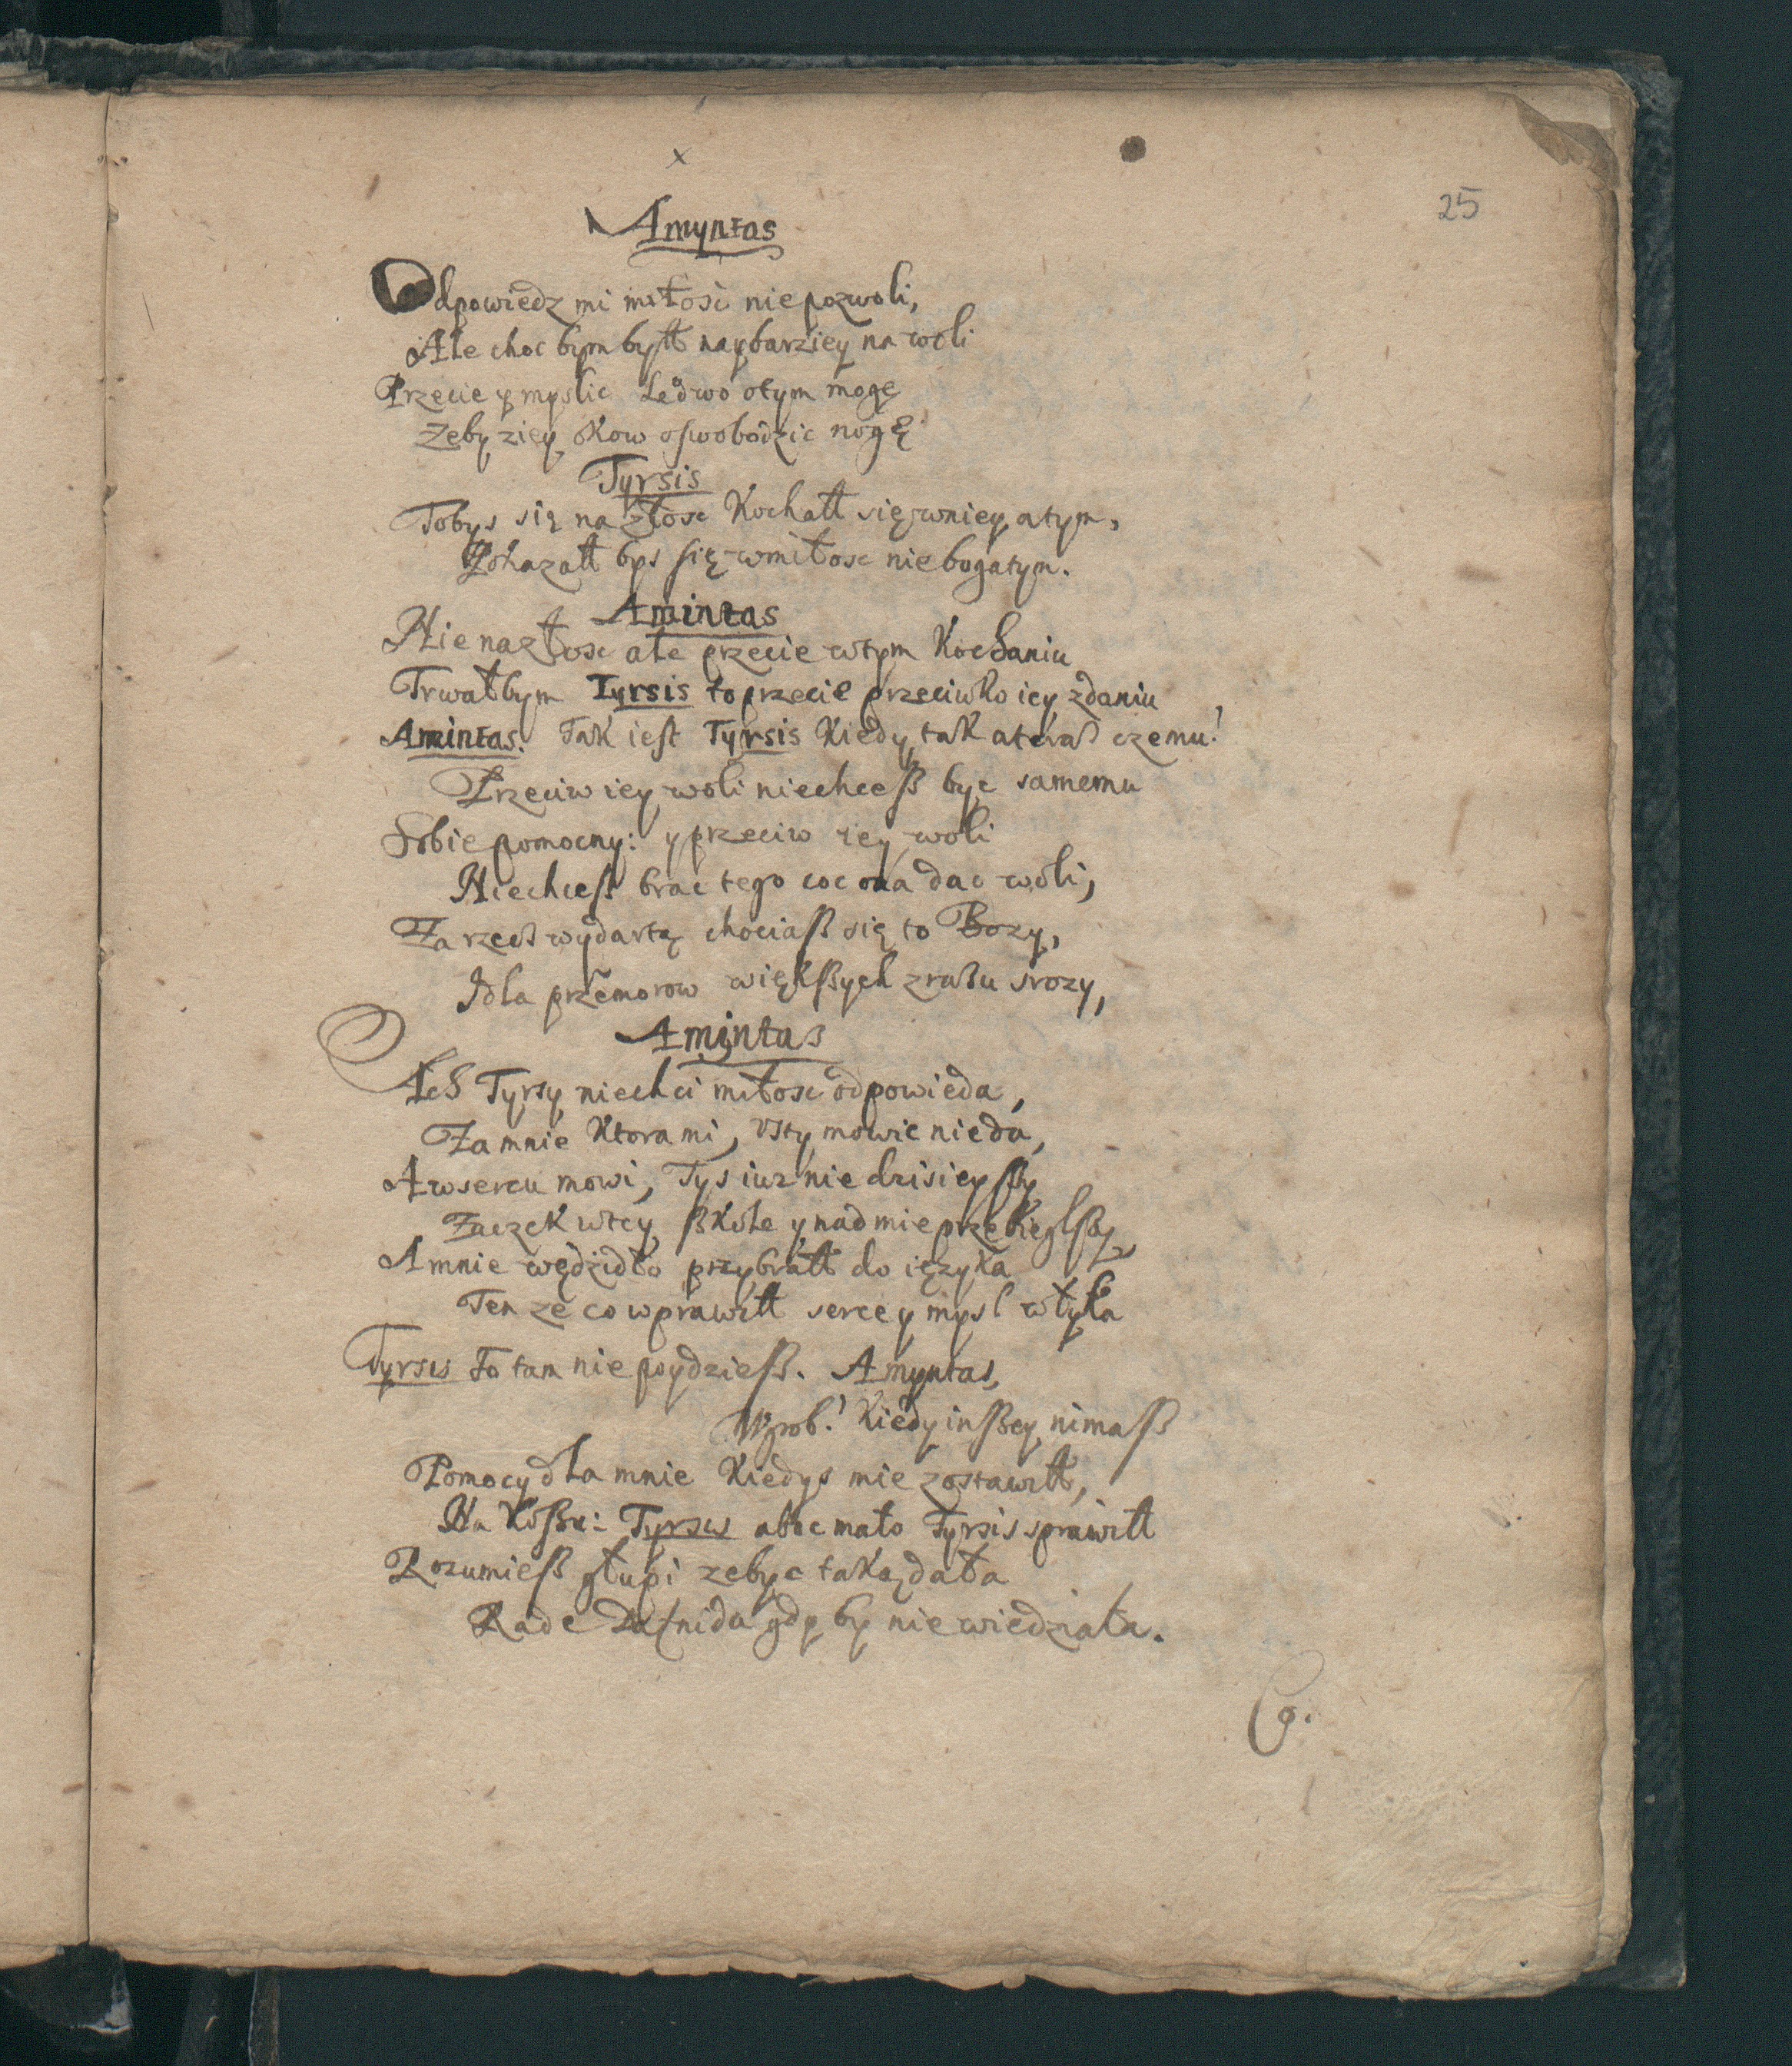 x
25
Amyntas
Odpowiedz mi miłosc nie pozwoli,
Ale choc bym bytł naybarziey na woli
Przecie y myslic Ledwo otym mogę
Zeby ziey okow oswobodzic nogę
Tyrsis
Tobys się na złosc Kochatł się wniey atym,
Pokazatł bys się wmiłosc niebogatym.
Amintas
Nie nazłosc ale przecie wtym Kochaniu
Trwałbym Tyrsis to przecie przeciwko iey zdaniu
Amintas. Tak iest Tyrsis Kiedy tak ateraß czemu!
Przeciw iey woli niechceß byc samemu
Sobie pomocny: y przeciw iey woli
Niechceß brac tego coc ona dac woli,
Za rzecz wydartą chociaß się to Bozy,
Idla przemorow więkßych zrazu srozy,
Amintas
Ach Tyrsy niech ci miłosc odpowieda,
Za mnie Ktora mi, Usty mowic nieda,
A wsercu mowi, Tys iuz nie dzisieyßy
Zaczek wtey ßkole y nad mie przebiegleßy
A mnie wędzidło przybratł do ięzyka
Ten ze co wprawitł serce y mysl włyka
Tyrsis To tam nie poydzieß. Amyntas,
Wprob! Kiedy inßey nimaß
Pomocy dla mnie Kiedys mie zostawitł,
Na Koßu: Tyrsis aboc mało Tyrsis sprawitł
Rozumieß głupi zebyc taką dała
Rade Dafnida gdy by nie wiedziała.